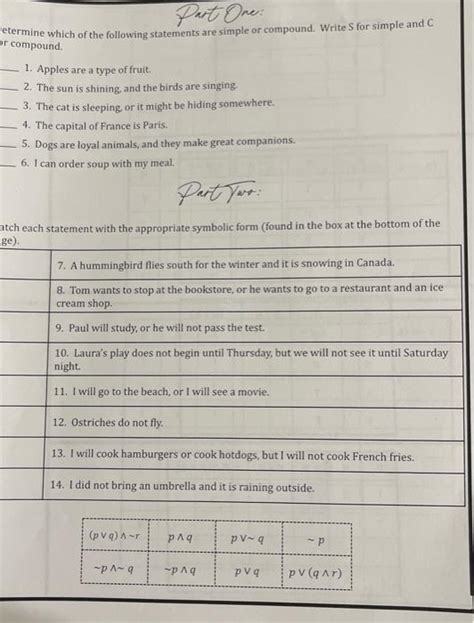 Part One:
etermine which of the following statements are simple or compound. Write S for simple and C
or compound.
1. Apples are a type of fruit.
2. The sun is shining, and the birds are singing.
3. The cat is sleeping, or it might be hiding somewhere.
4. The capital of France is Paris.
5. Dogs are loyal animals, and they make great companions.
6. I can order soup with my meal.
Part Two:
atch each statement with the appropriate symbolic form (found in the box at the bottom of the
ge).
7. A hummingbird flies south for the winter and it is snowing in Canada.
8. Tom wants to stop at the bookstore, or he wants to go to a restaurant and an ice
cream shop.
9. Paul will study, or he will not pass the test.
10. Laura's play does not begin until Thursday, but we will not see it until Saturday
night.
11. I will go to the beach, or I will see a movie.
12. Ostriches do not fly.
13. I will cook hamburgers or cook hotdogs, but I will not cook French fries.
14. I did not bring an umbrella and it is raining outside.
(p∨q)∧~r p∧q p∨~q ~p
~p∧~q ~p∧q p∨q p∨(q∧r)